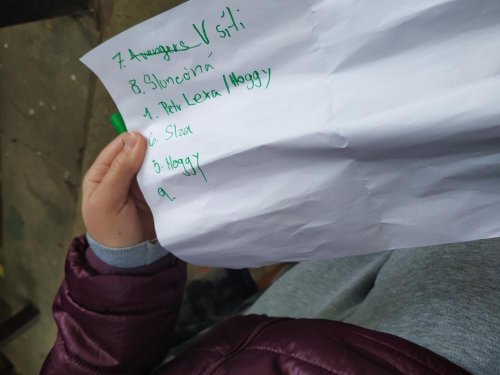 7. Avengers V síti
8. Sluncová
1. Petr Lexa / Hoggy
6. Slza
5. Hoggy
9.